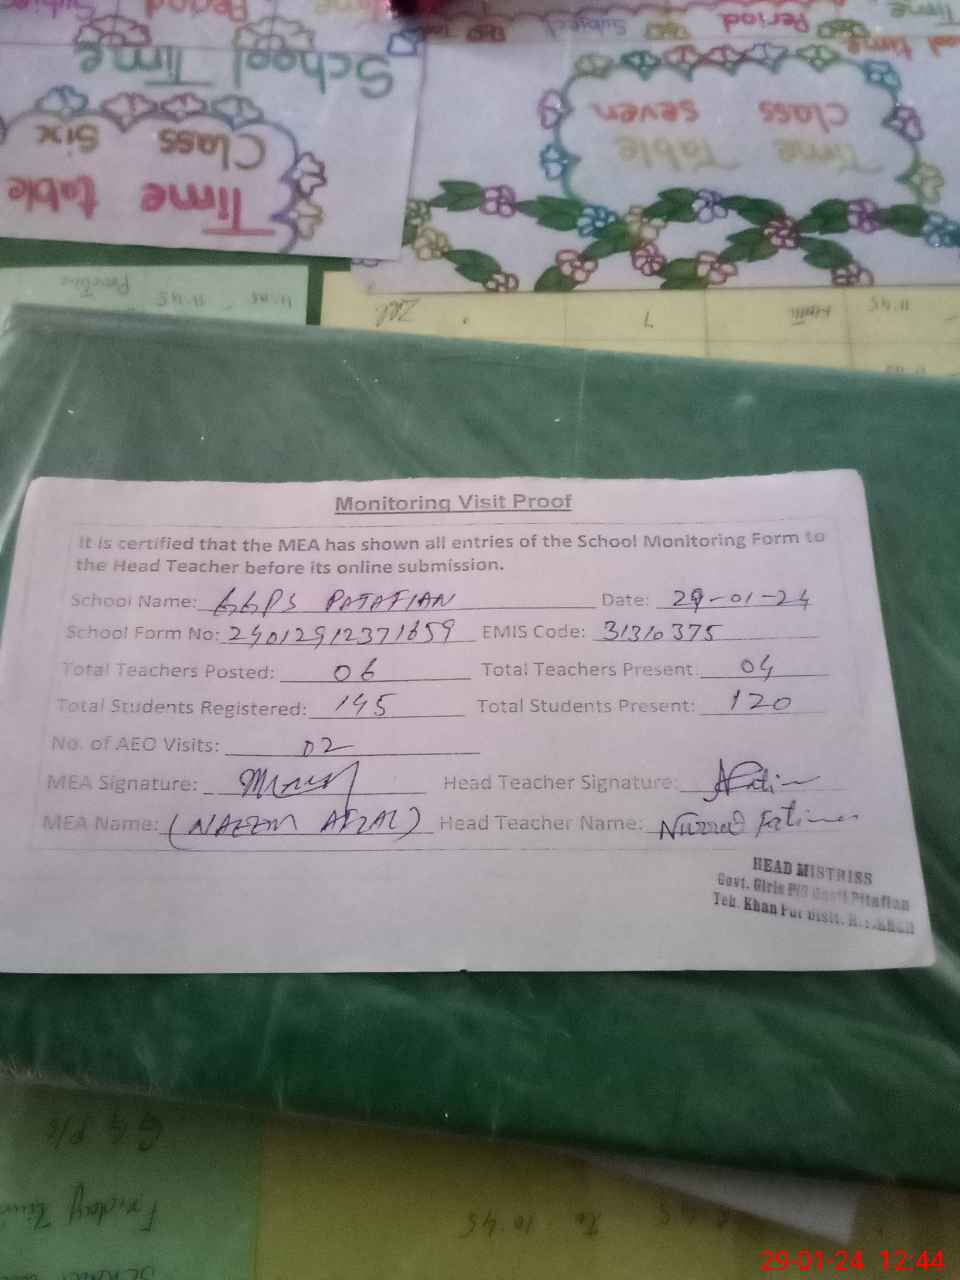 Subject
Period
Time
School Time
Class Six
Time table
Period
Subject
Time
Class seven
Time Table
11.45
Monitoring Visit Proof
It is certified that the MEA has shown all entries of the School Monitoring Form to
the Head Teacher before its online submission.
School Name: GGPS PATAFIAN Date: 29-01-24
School Form No: 24012912371659 EMIS Code: 31310375
Total Teachers Posted: 06 Total Teachers Present: 04
Total Students Registered: 145 Total Students Present: 120
No. of AEO Visits: 02
MEA Signature: Head Teacher Signature:
MEA Name: (NAEEM AFZAL) Head Teacher Name: Fatima
HEAD MISTRISS
Govt. Girls P/S Pitafian
Teh. Khan Pur Distt. R.Y.KHAN
G.G P/S
Friday Time
To 10.45
29-01-24 12:44